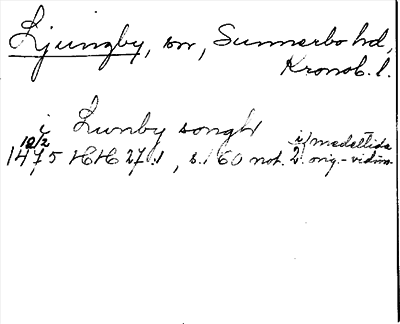 Ljungby, sn, Sunnerbo hd,
Kronob. l.
i Liunby songh
1475 10/2 HH 27:1, s. 160 not. 2. i medeltida
orig.-vidim.